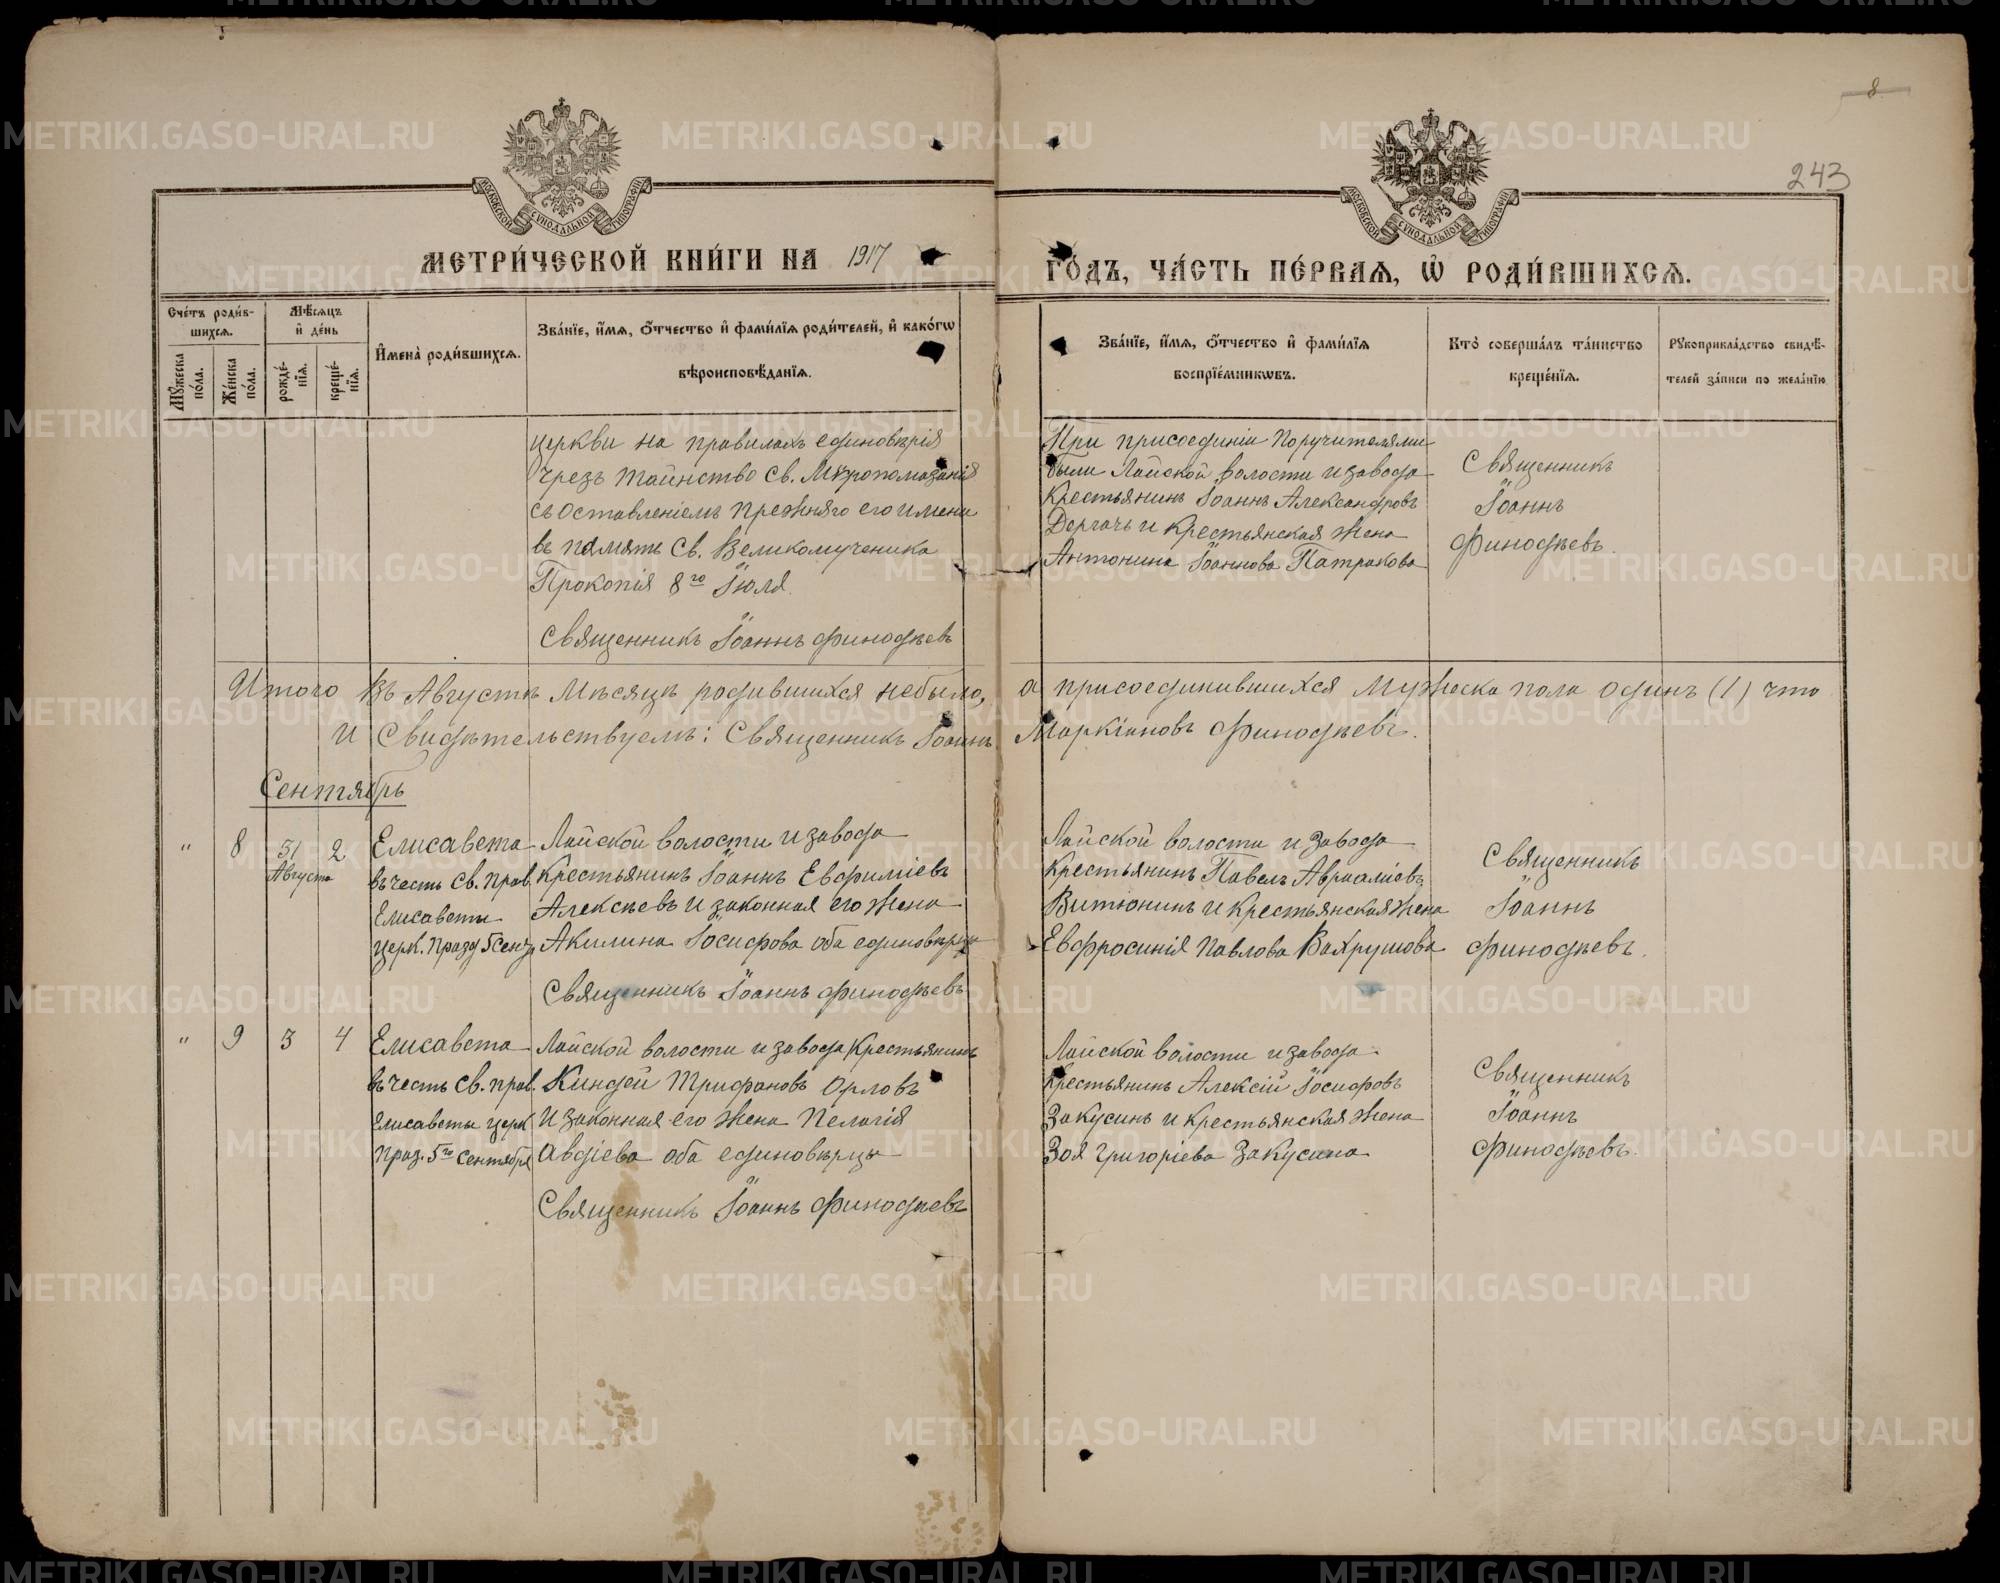 8
243
МОСКОВСКОЙ СѴНОДАЛЬНОЙ ТИПОГРАФІИ
МОСКОВСКОЙ СѴНОДАЛЬНОЙ ТИПОГРАФІИ
МЕТРИ́ЧЕСКОЙ КНИ́ГИ НА 1917
ГО́ДЪ, ЧА́СТЬ ПЕ́РВАѦ, Ѡ҆ РОДИ́ВШИХСѦ.
Сче́тъ роди́в-
шихсѧ.
Мѣ́сѧцъ
и҆ де́нь
Мꙋ́жеска
по́ла.
Же́нска
по́ла.
рожде́-
нїѧ.
креще́-
нїѧ.
И҆мена̀ роди́вшихсѧ.
Зва́нїе, и҆́мѧ, ѻ҆́тчество и҆ фами́лїѧ роди́телей, и҆ како́гѡ
вѣроисповѣ́данїѧ.
Зва́нїе, и҆́мѧ, ѻ҆́тчество и҆ фами́лїѧ
воспрїе́мникѡвъ.
Кто̀ соверша́лъ та́инство
креще́нїѧ.
Рꙋкоприкла́дство свидѣ́-
телей за́писи по жела́нїю
церкви на правилахъ единовѣрія
Чрезъ таинство Св. Мѵропомазанія
съ оставленіемъ прежняго его имени
въ память Св. Великомученика
Прокопія 8го Іюля.
Священникъ Іоаннъ Финодѣевъ
При присоединіи Поручителями
были Лайской волости и завода
Крестьянинъ Іоаннъ Александровъ
Дергачъ и Крестьянская жена
Антонина Іоаннова Патракова
Священникъ
Іоаннъ
Финодѣевъ.
Итого Въ Августѣ Мѣсяцѣ родившихся небыло, а присоединившихся Мужеска пола одинъ (1) что
и Свидѣтельствуемъ: Священникъ Іоаннъ Маркіановъ Финодѣевъ.
Сентябрь
" 8 31 2
Августа
Елисавета
въ честь Св. Прав.
Елисаветы
церк. Празд 5 Сент.
Лайской волости и завода
Крестьянинъ Іоаннъ Евфиміевъ
Алексѣевъ и законная его жена
Акилина Іосифова оба единовѣрцы
Священникъ Іоаннъ Финодѣевъ
Лайской волости и завода
Крестьянинъ Павелъ
Витюнинъ и Крестьянская жена
Евфросинія Павлова Вахрушова
Священникъ
Іоаннъ
Финодѣевъ.
" 9 3 4
Елисавета
въ честь Св. прав.
Елисаветы церк
праз. 5го Сентября
Лайской волости и завода Крестьянинъ
Киндей Трифановъ Орловъ
и законная его жена Пелагія
Авдіева оба единовѣрцы
Священникъ Іоаннъ Финодѣевъ
Лайской волости и завода
Крестьянинъ Алексій Іосифовъ
Закусинъ и Крестьянская жена
Зоя Григоріева Закусина
Священникъ
Іоаннъ
Финодѣевъ.
METRIKI.GASO-URAL.RU